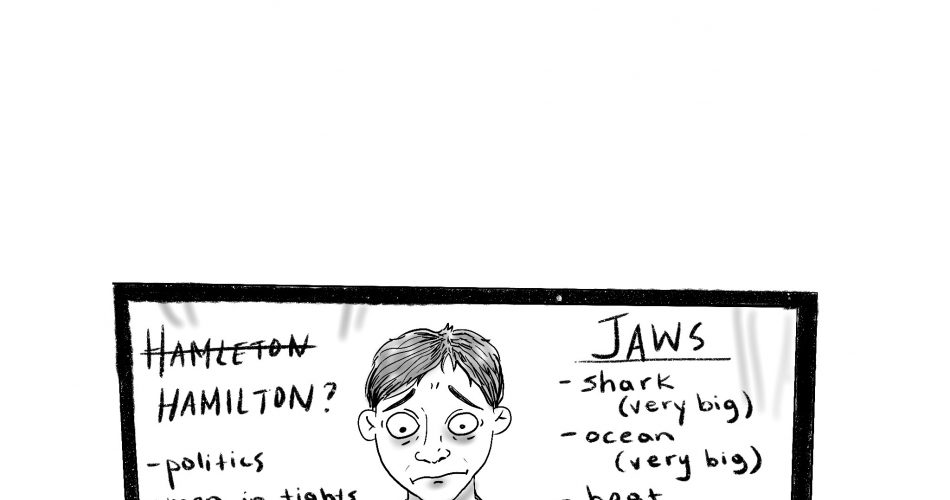 HAMLETON
HAMILTON?
-politics
-men in tights
JAWS
- shark
(very big)
- ocean
(very big)
- boat